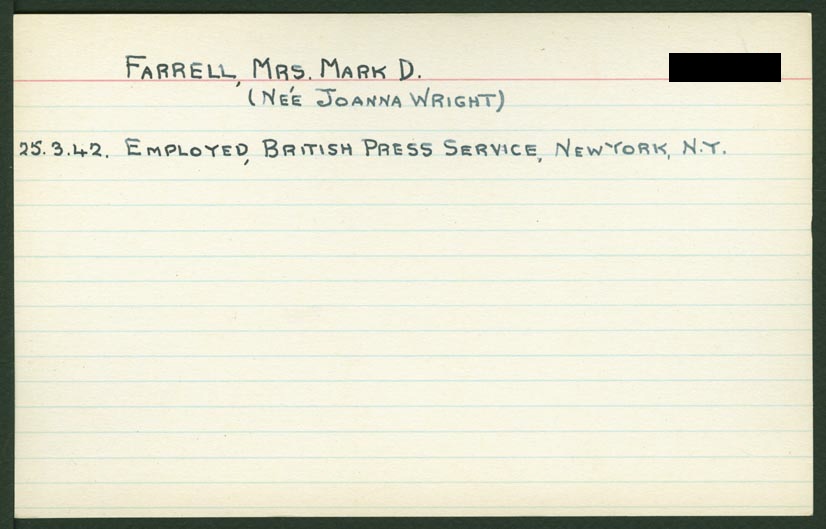 FARRELL, MRS. MARK D.
(NÉE JOANNA WRIGHT)
25.3.42. EMPLOYED, BRITISH PRESS SERVICE, NEW YORK, N.Y.